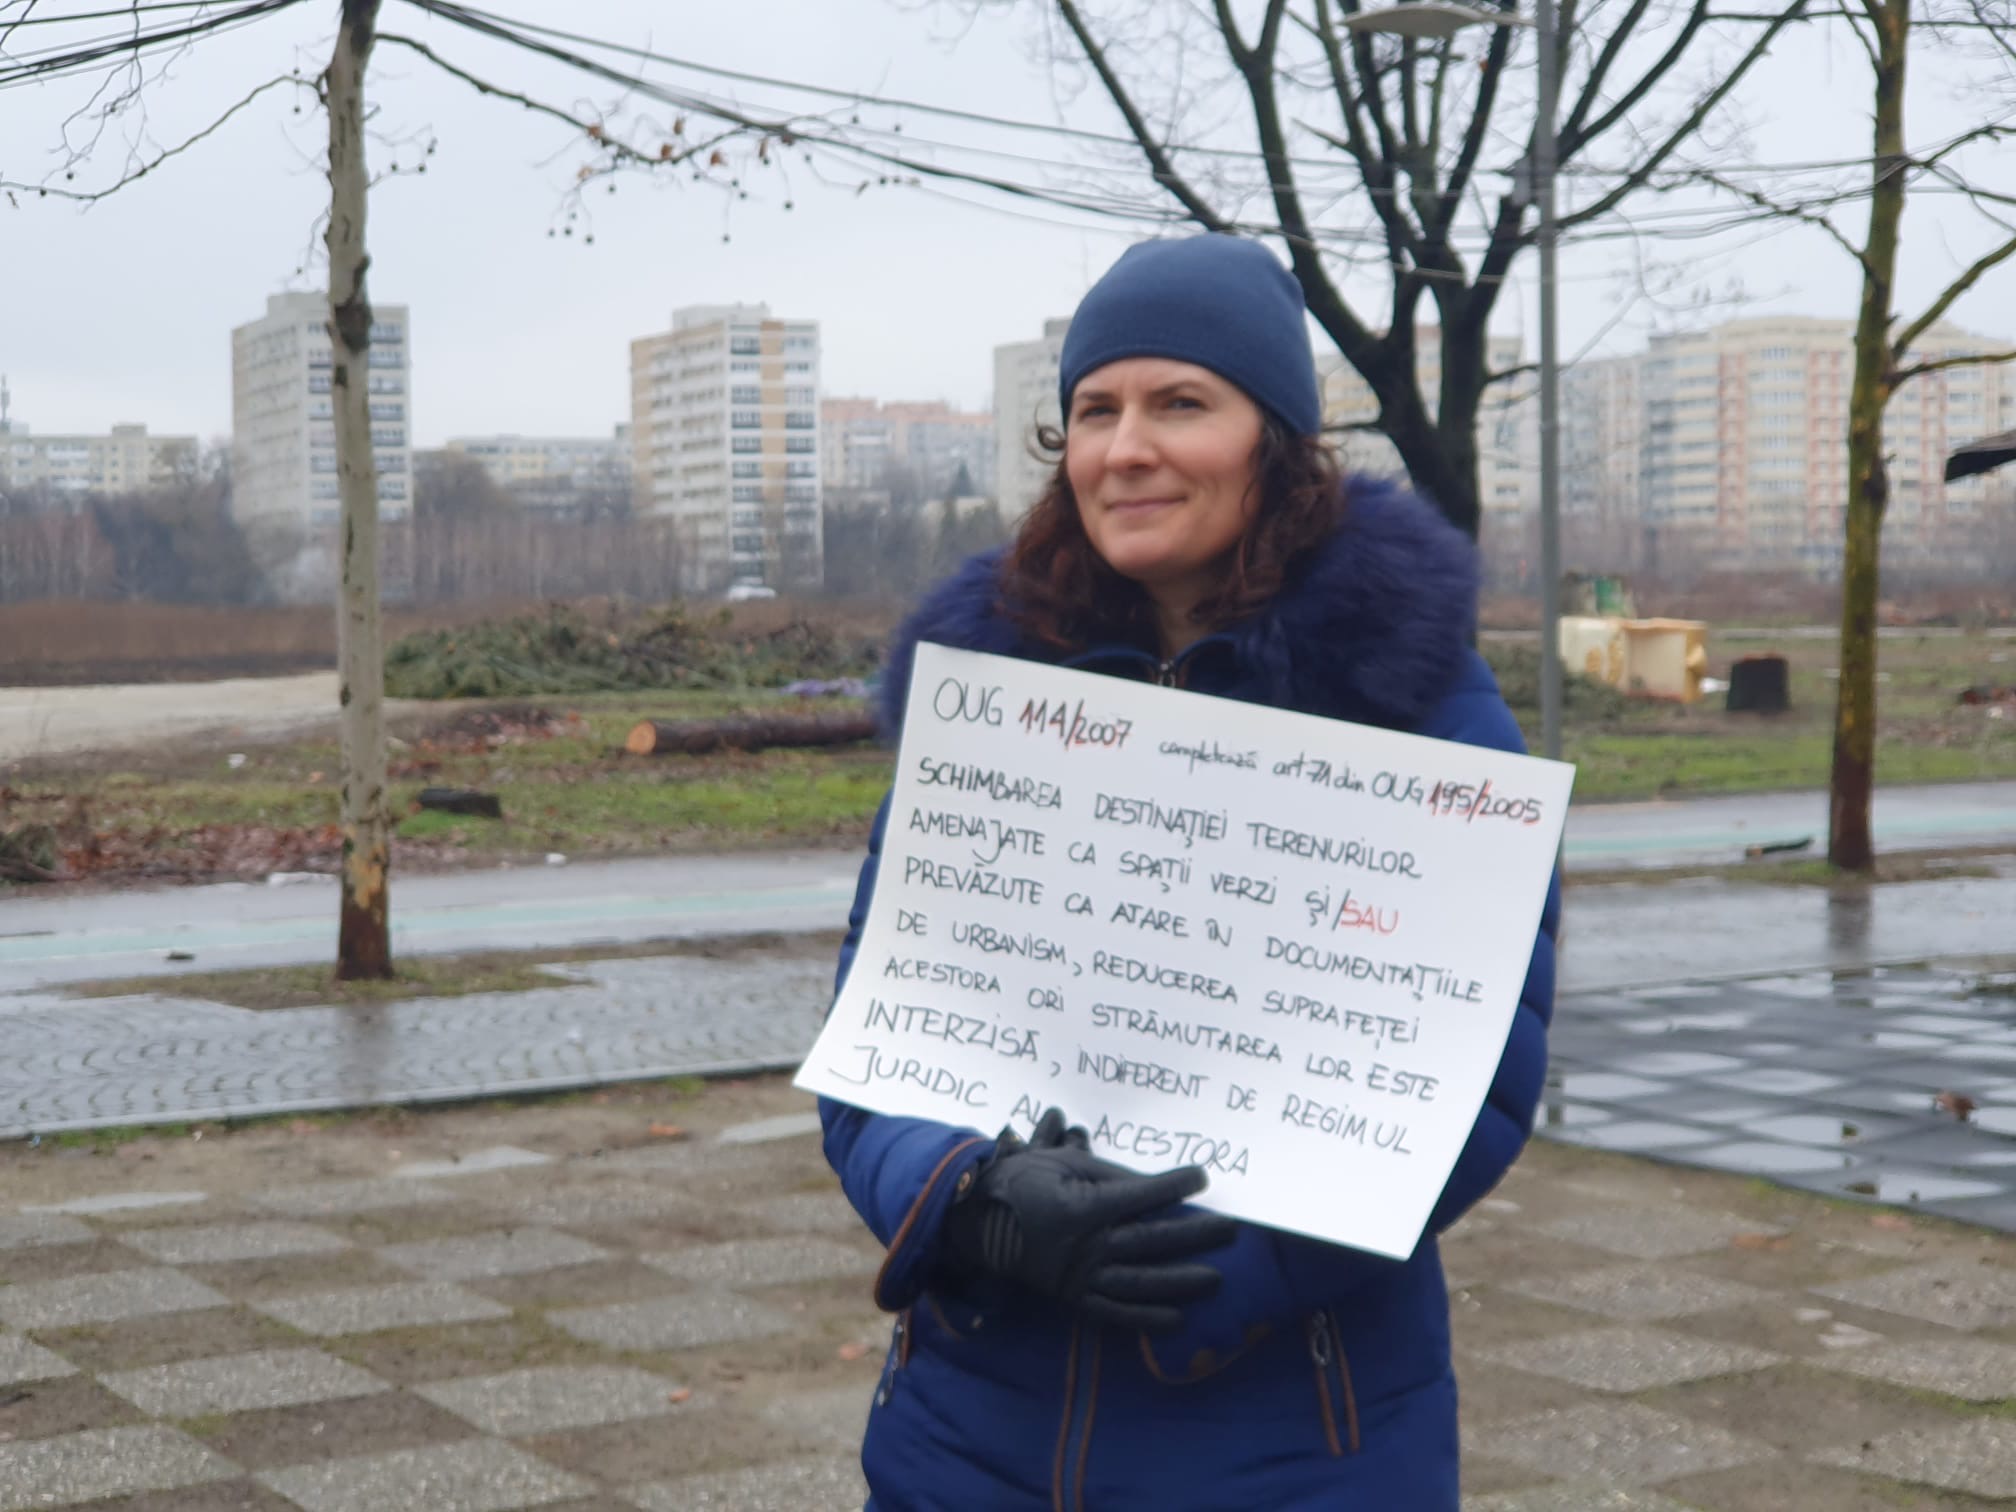 OUG 114/2007 completează art 71 din OUG 195/2005
SCHIMBAREA DESTINAȚIEI TERENURILOR
AMENAJATE CA SPAȚII VERZI ȘI/SAU
PREVĂZUTE CA ATARE ÎN DOCUMENTAȚIILE
DE URBANISM, REDUCEREA SUPRAFEȚEI
ACESTORA ORI STRĂMUTAREA LOR ESTE
INTERZISĂ, INDIFERENT DE REGIMUL
JURIDIC AL ACESTORA